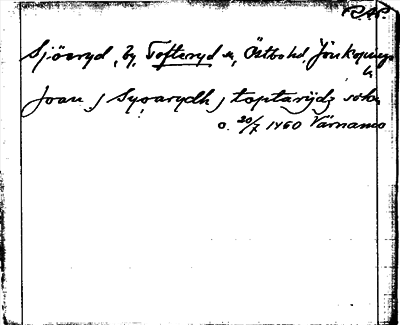 R.A.P.
Sjöaryd, by, Tofteryd sn, Östbo hd, Jönköpings
l.
Joan j Syoarydh j toptarijdz sokn
o. 20/7 1460 Värnamo